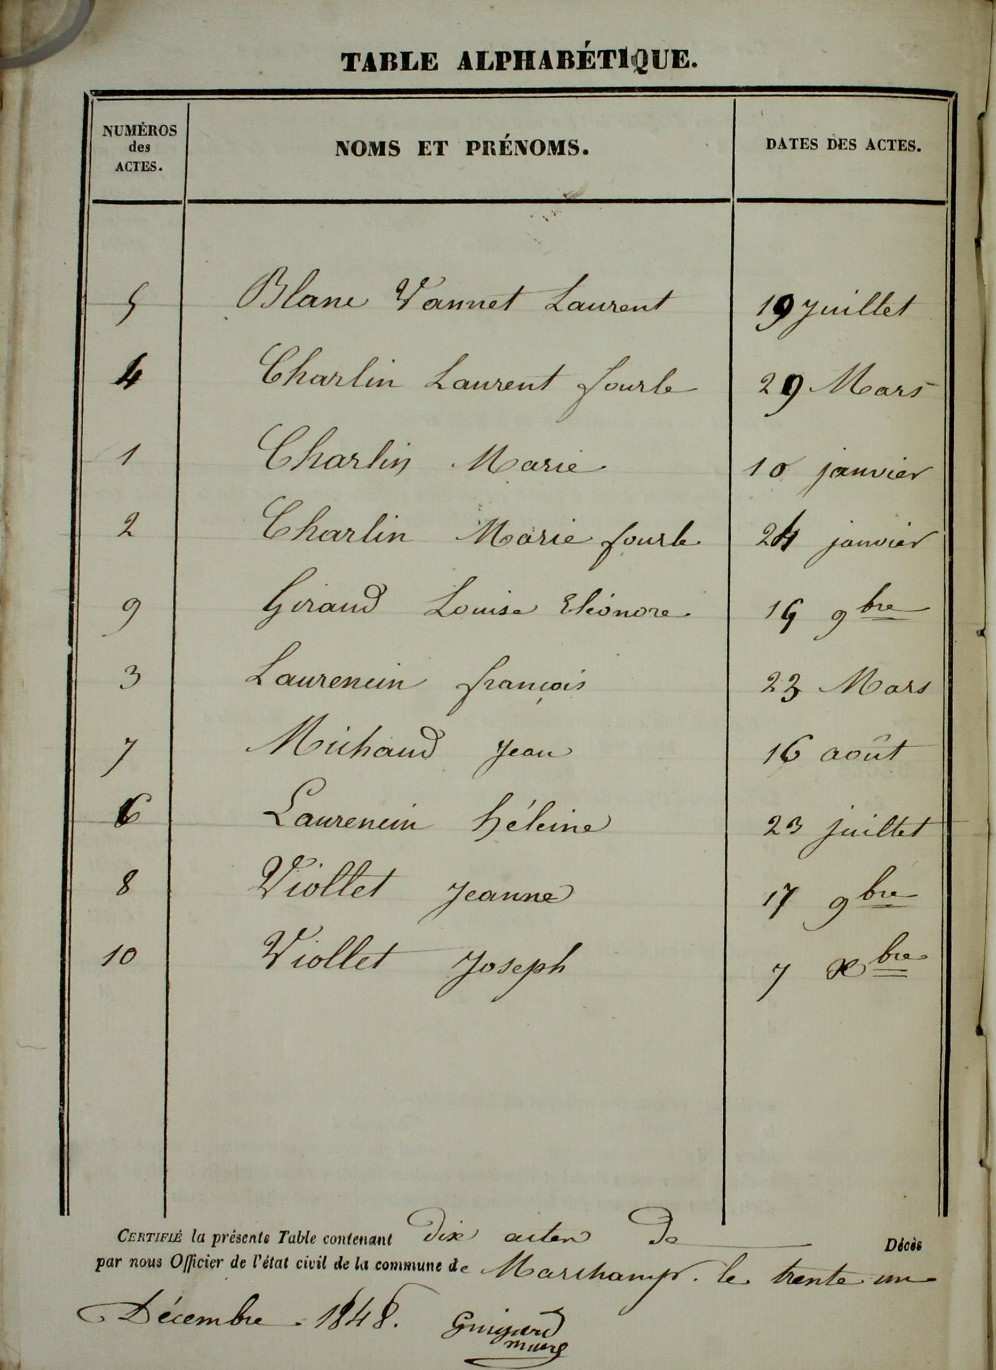 TABLE ALPHABÉTIQUE.
NUMÉROS des ACTES. NOMS ET PRÉNOMS. DATES DES ACTES.
5 Blanc Vannet Laurent 19 Juillet
4 Charlin Laurent fourle 29 Mars
1 Charlin Marie 10 janvier
2 Charlin Marie fourle 24 janvier
9 Giraud Louise Eléonore 19 9bre
3 Laurencin françois 23 Mars
7 Michaud Jean 16 août
6 Laurencin héleine 23 juillet
8 Viollet Jeanne 17 9bre
10 Viollet Joseph 7 Xbre
CERTIFIÉ la présente Table contenant dix actes De Décès
par nous Officier de l'état civil de la commune de Marchamp. le trente un
Décembre 1848.
Guigard
maire